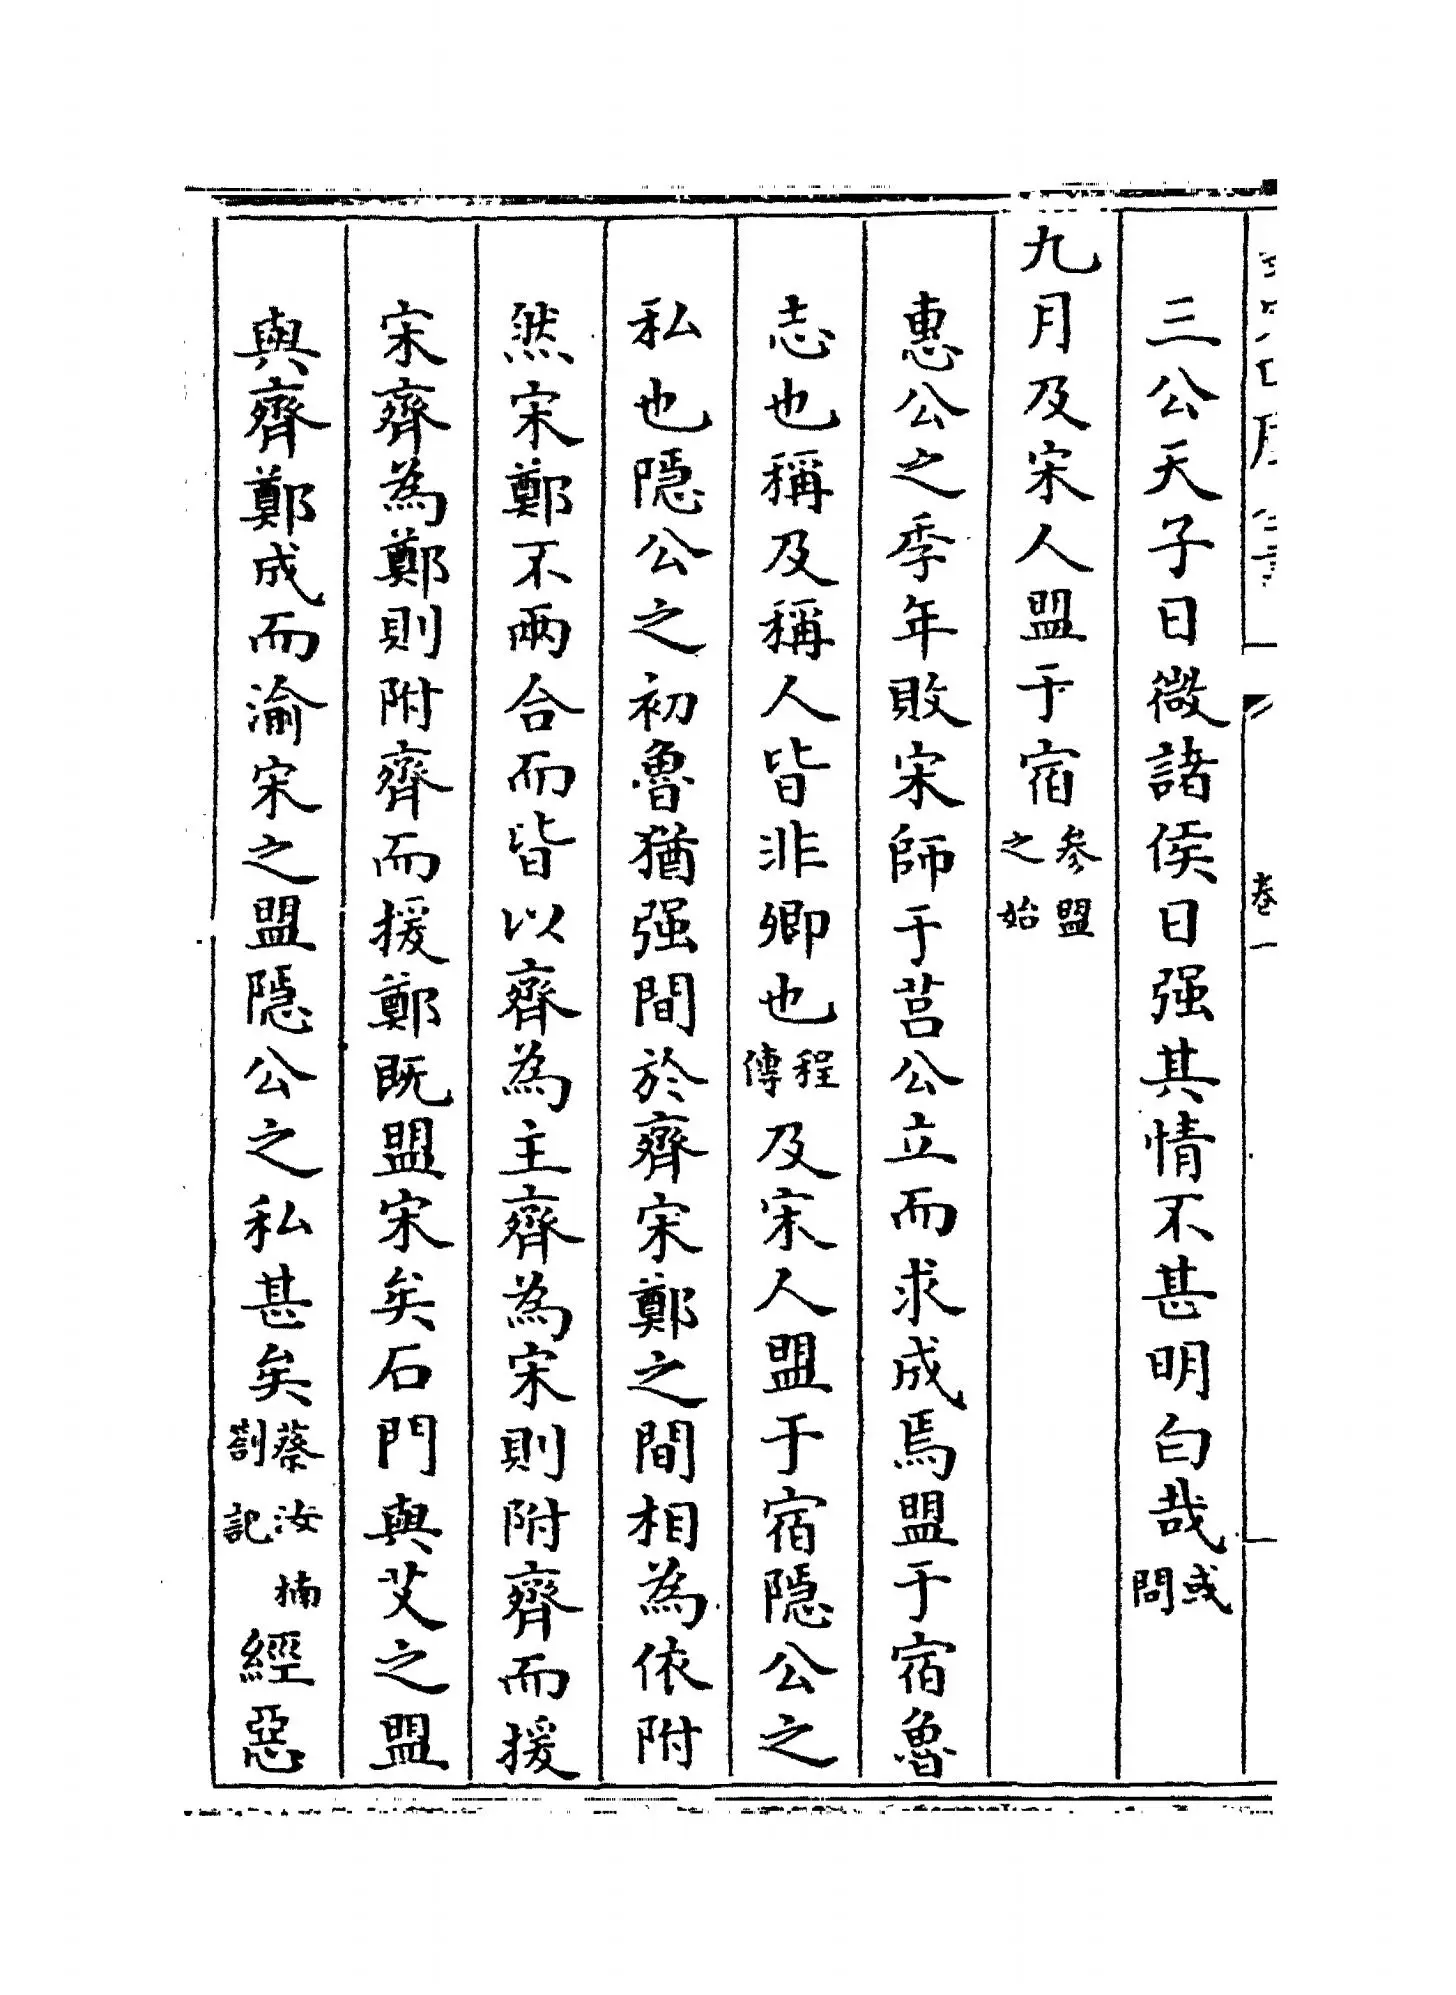 三公天子日微諸侯日强其情不甚明白哉或問
九月及宋人盟于宿叅盟之始
惠公之季年敗宋師于莒公立而求成焉盟于宿魯
志也稱及稱人皆非卿也程傳及宋人盟于宿隱公之
私也隱公之初魯猶强間於齊宋鄭之間相為依附
然宋鄭不兩合而皆以齊為主齊為宋則附齊而援
宋齊為鄭則附齊而援鄭既盟宋矣石門與艾之盟
與齊鄭成而渝宋之盟隱公之私甚矣蔡汝楠劄記經惡
卷一